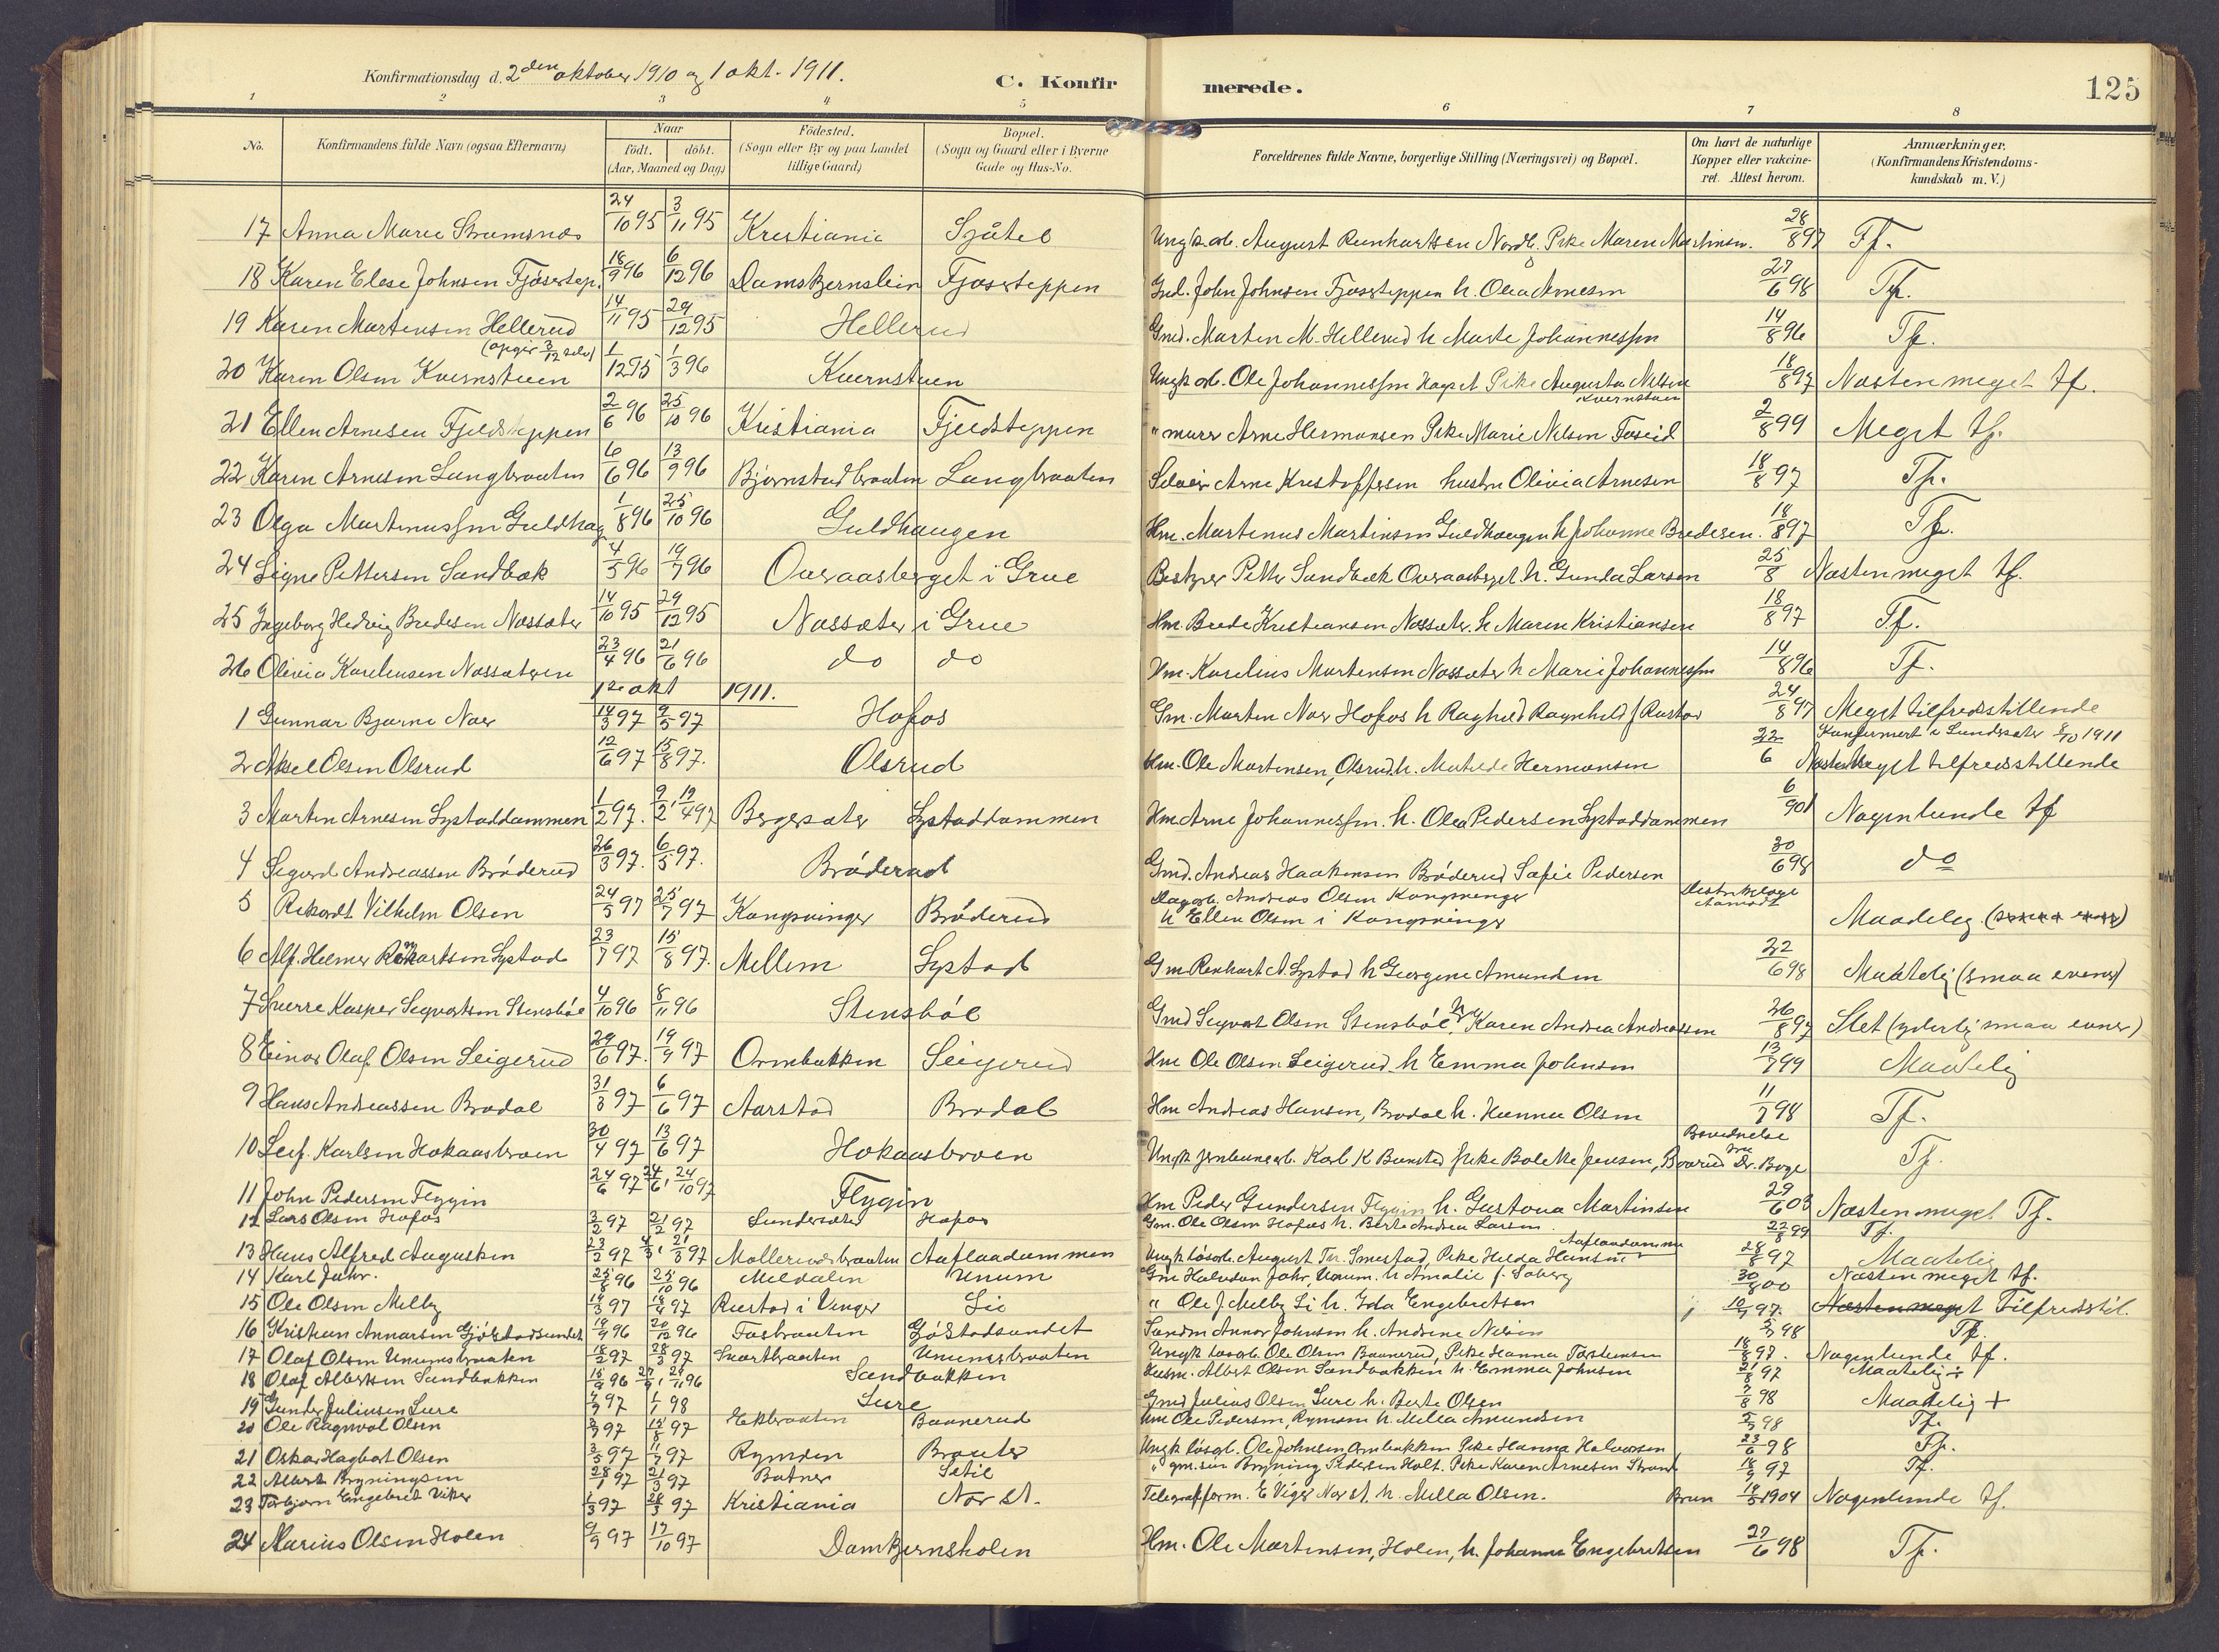 Konfirmationsdag d. 2den oktober 1910 og 1 okt. 1911.
C. Konfirmerede.
125
1 2 3 4 5 6 7 8
No. Konfirmandens fulde Navn (ogsaa Efternavn) Naar födt. döbt. (Aar, Maaned og Dag.) Födested. (Sogn eller By og paa Landet tillige Gaard.) Bopæl. (Sogn og Gaard eller i Byerne Gade og Hus-No. Forældrenes fulde Navne, borgerlige Stilling (Næringsvei) og Bopæl. Om havt de naturlige Kopper eller vakcineret. Attest herom. Anmærkninger. (Konfirmandens Kristendomskundskab m. V.)
17 Anna Marie Strumsnes 24/10 95 3/11 95 Kristiania Sjåtel Ungk. arb. August Reinhartsen Nordb. Pike Maren Martinsen. 28/8 97 Tf.
18 Karen Elese Johnsen Fjøsertep. 18/9 96 6/12 96 Damtjernslien Fjøserteppen Gmd. John Johnsen Fjøserteppen h. Olea Arnesen 27/6 98 Tf.
19 Karen Martensen Hellerud 14/11 95 29/12 95 Hellerud Gmd. Marten M. Hellerud h Marte Johannessen 14/8 96 Tf.
(opgir 3/12 selv)
20 Karen Olsen Kvernstuen 1/12 95 1/3 96 Kvernstuen Ungk arb. Ole Johannessen Haget Pike Augusta Nilsen Kvernstuen 18/8 97 Næsten meget tf.
21 Ellen Arnesen Fjeldsteppen 2/6 96 25/10 96 Kristiania Fjeldsteppen " murer Arne Hermansen Pike Marie Nilsen Foseid 2/8 99 Meget tf.
22 Karen Arnesen Langbraaten 6/6 96 13/9 96 Bjørnstadbraaten Langbraaten Selveier Arne Kristoffersen hustru Olivia Arnesen 18/8 97 Tf.
23 Olga Martinussen Guldhag 1/8 96 25/10 96 Guldhaugen Hm. Martinus Martinsen Guldhaugen h Johanne Bredesen. 18/8 97 Tf.
24 Signe Pettersen Sandbæk 4/5 96 19/7 96 Overaasberget i Grue Bestyrer Petter Sandbæk Overaasberget h. Gunda Larsen 25/8 Næsten meget tf.
25 Ingeborg Hedvig Bredesen Næssæter 14/10 95 29/12 95 Næssæter i Grue Hm. Brede Kristiansen Næssæter. h Maren Kristiansen 18/8 97 Tf.
26 Olivia Kareliusen Næssæteren 23/4 96 21/6 96 do do Hm. Karelius Martensen Næssæter h Marie Johannessen 14/8 96 Tf.
1ste okt 1911.
1 Gunnar Bjarne Noer 14/3 97 9/5 97 Hofos Gm. Marten Noer Hofos h Raghild Ragnhild f Rustad 24/8 97 Meget tilfredsstillende
Konfirmert i Lundersæter 8/10 1911
2 Aksel Olsen Olsrud 12/6 97 15/8 97. Olsrud Hm. Ole Martensen, Olsrud h. Matilde Hermansen 22/6 Næsten meget tilfredsstillende
3 Marten Arnesen Systaddammen 1/2 97. 9/2, 19/4 97 Bergersæter Systaddammen Hm Arne Johannessen. h. Olea Pedersen Systaddammen 6/901 Nogenlunde tf
4 Sigurd Andreassen Bråderud 26/3 97. 6/5 97. Bråderud Gmd. Andreas Haakensen Bråderud Safie Pedersen 30/6 98 do
5 Rikardt Vilhelm Olsen 24/5 97 25/7 97 Kongsvinger Bråderud Dagarb. Andreas Olsen Kongsvinger h Ellen Olsen i Kongsvinger Distriktslæge Aamodt Maadelig
6 Alf. Helmer Reinhartsen Systad 23/7 97 15/8 97. Mellem Systad Gm Reinhart A. Systad h Georgine Amundsen 22/6 98 Maadelig (smaa evner)
7 Sverre Kasper Sigvartsen Stensbøl 4/10 96 8/11 96 Stensbøl Gmd Sigvart Olsen Stensbøl h Karen Andrea Andreassen 26/8 97 Slet (yderlig smaa evner)
8 Einar Olaf. Olsen Seigerud 29/6 97. 19/9 97 Ormbakken Seigerud Hm Ole Olsen Seigerud h Emma Johnsen 13/7 99 Maadelig
9 Hans Andreassen Brodal 31/3 97 6/6 97 Aarstad Brodal Hm Andreas Hansen, Brodal h. Hanna Olsen 11/7 98 Tf.
10 Leif. Karlsen Hokaasbroen 30/4 97 13/6 97 Hokaasbroen Ungk jernbanearb. Karl K Bunsted Pike Bolette Jensen, Boverud Bevidnelse fra Dr. Boye Tf.
11 John Pedersen Flygin 24/6 97 24/6, 24/10 97 Flygin Hm Peder Gundersen Flygin h. Gustava Martinsen 29/6 03 Næsten meget Tf.
12 Lars Olsen Hofos 3/2 97 21/2 97 Lundersæter Hofos Gm. Ole Olsen Hofos h. Berte Andrea Larsen 22/8 99 Tf.
13 Hans Alfred Augustsen 23/2 97 4/3, 21/3 97 Møllerudsbraaten Aaflaadammen Ungk løsarb. August Tr. Smestad, Pike Hilda Hansen Aaflaadammen 28/8 97 Maadelig
14 Karl Jahr. 25/8 96 25/10 96 Meldalen Unum Gm Halvdan Jahr, Unum. h Amalie f. Søberg 30/8 00 Næsten meget tf.
15 Ole Olsen Melby 14/3 97 18/4 97 Rustad i Vinger Li " Ole J Melby Li h. Ida Engebretsen 10/9 97. Næsten meget Tilfredsstil.
16 Kristian Annarsen Gjølstadsundet 19/9 96 20/12 96 Fosbraaten Gjølstadsundet Sundm Annar Johnsen h. Andrine Nilsen 5/7 98 Tf.
17 Olaf Olsen Unumsbraaten 18/2 97 28/3 97 Svartbraaten Unumsbraaten Ungk løsarb. Ole Olsen Baunerud, Pike Hanna Torstensen 18/8 97. Nogenlunde tf.
18 Olaf Albertsen Sandbakken 15/9 96 27/9, 29/11 96 Sandbakken Husm. Albert Olsen Sandbakken h Emma Johnsen 21/8 97 Maadelig +
19 Gunder Juliusen Lure 4/9 97 1/1 98 Lure Gmd Julius Olsen Lure h. Berte Olsen 7/8 98 Maadelig +
20 Ole Ragnvald Olsen 3/7 97 15/8 97 Ekbraaten Baunerud Hm Ole Pedersen, Rymoen h Milla Amundsen 5/7 98 Tf.
21 Oskar Hagbart Olsen 3/5 97 11/7 97 Rymoen Brauter Ungk løsarb. Ole Johnsen Ormbakken Pike Hanna Halvorsen 23/6 98 Tf.
22 Albert Bryningsen 28/1 97 21/3 97 Botner Setil " gm. søn Bryning Pedersen Holt. Pike Karen Arnesen Strand 18/9 97 Tf.
23 Torbjørn Engebret Viker 1/3 97 28/3 97 Kristiania Nor st. Telegrafform. E Viger Nor st. h. Milla Olsen. Brun 18/5 1904 Nogenlunde tf.
24 Marius Olsen Holen 9/9 97 17/10 97 Damtjernsholen Hm. Ole Martensen, Holen, h. Johanne Engebretsen 27/6 98 Tf.